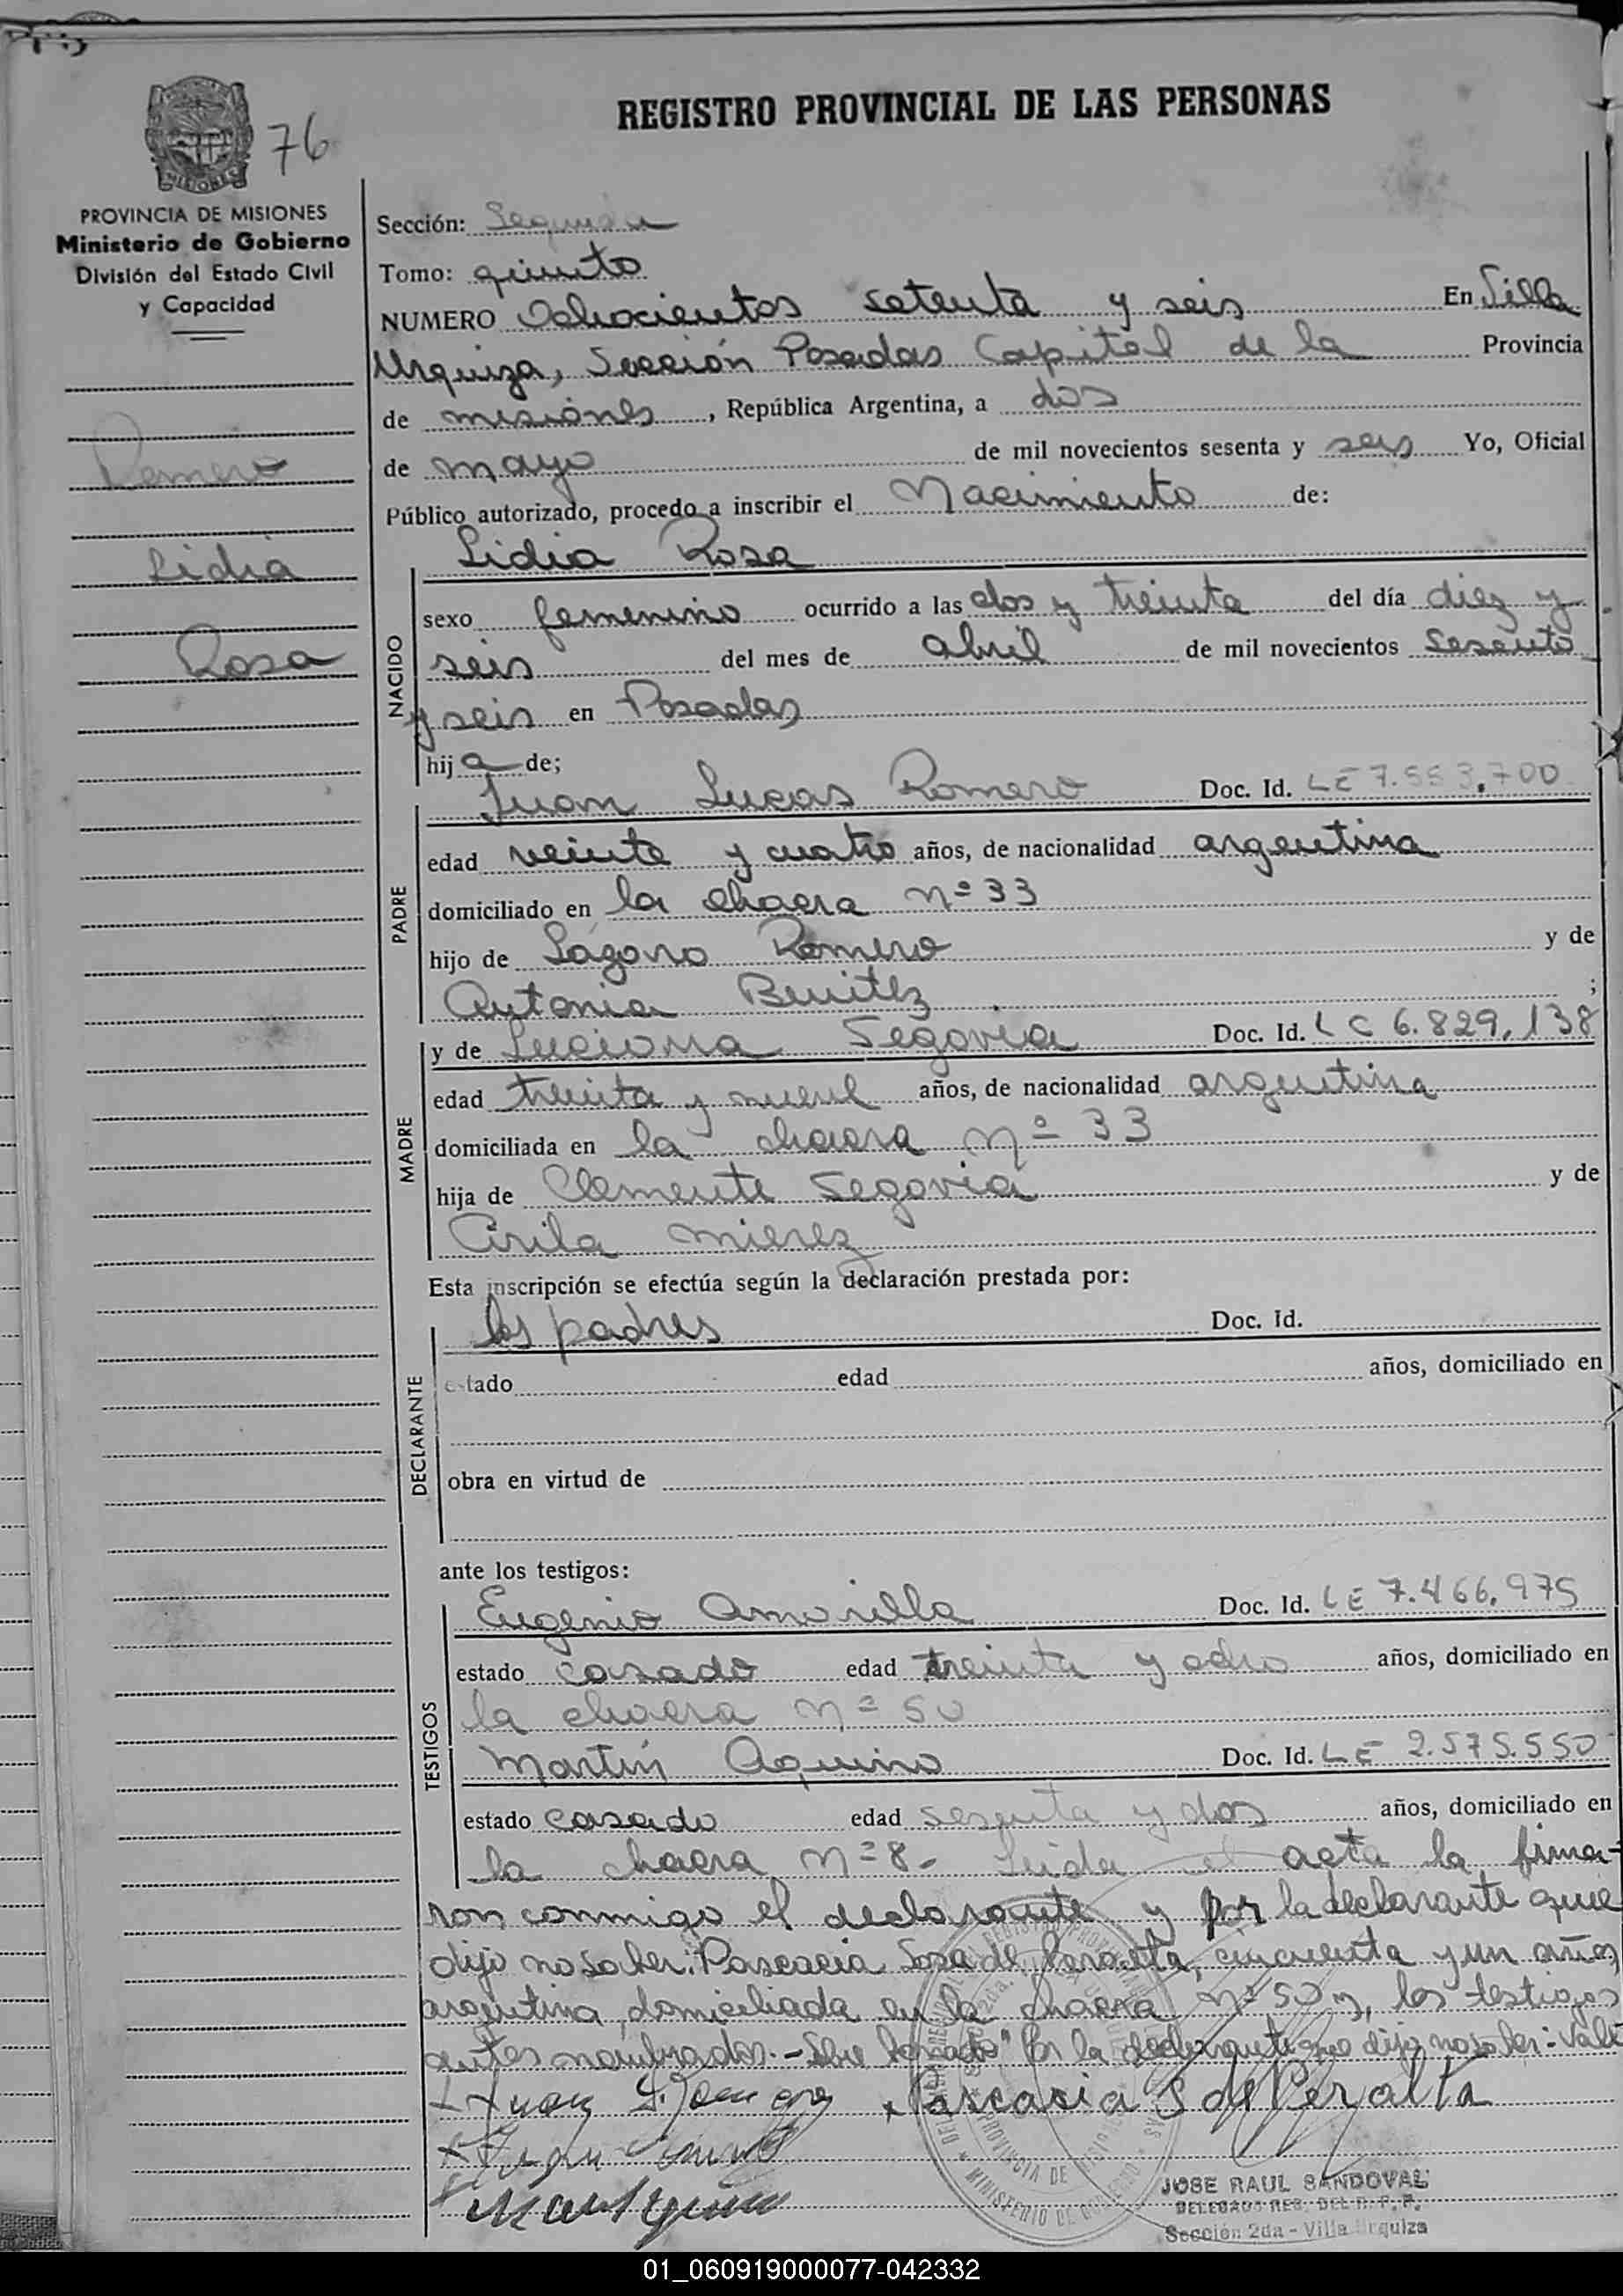 REGISTRO PROVINCIAL DE LAS PERSONAS
MISIONES
76
PROVINCIA DE MISIONES
Ministerio de Gobierno
División del Estado Civil
y Capacidad
Romero
Lidia
Rosa
Sección: Segunda
Tomo: quinto
NUMERO Ochocientos setenta y seis En Villa
Urquiza, Sección Posadas Capital de la Provincia
de misiones, República Argentina, a dos
de mayo de mil novecientos sesenta y seis Yo, Oficial
Público autorizado, procedo a inscribir el Nacimiento de:
Lidia Rosa
NACIDO
sexo femenino ocurrido a las dos y treinta del día diez y
seis del mes de abril de mil novecientos sesenta
y seis en Posadas
hija de;
Juan Lucas Romero Doc. Id. LE 7.553.700
PADRE
edad veinte y cuatro años, de nacionalidad argentina
domiciliado en la chacra nº 33
hijo de Lázaro Romero y de
Antonia Benitez ;
y de Luciana Segovia Doc. Id. LC 6.829.138
MADRE
edad treinta y nueve años, de nacionalidad argentina
domiciliada en la chacra nº 33
hija de Clemente Segovia y de
Cirila mierez
Esta inscripción se efectúa según la declaración prestada por:
los padres Doc. Id.
DECLARANTE
estado edad años, domiciliado en
obra en virtud de
ante los testigos:
Eugenio Amarilla Doc. Id. LE 7.466.975
TESTIGOS
estado casado edad treinta y ocho años, domiciliado en
la chacra nº 50
Martín Aquino Doc. Id. LE 2.575.550
estado casado edad sesenta y dos años, domiciliado en
la chacra nº 8- Leida el acta la firma-
ron conmigo el declarante y por la declarante que
dijo no saber: Pascacia Sosa de Peralta, cincuenta y un años,
argentina, domiciliada en la chacra nº 50 y, los testigos
antes nombrados.- Sobre borrado "Por la declarante que dijo no saber: Vale
Juan
Pascacia S de Peralta
JOSE RAUL SANDOVAL
DELEGADO REG. DEL R. P. P.
Sección 2da - Villa Urquiza
01_060919000077-042332